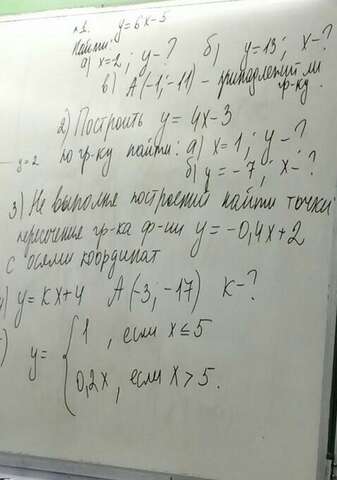 №1. y=6x-5
Найти:
а) x=2; y-? б) y=13; x-?
в) A(-1; -11) - принадлежит ли
гр-ку.
2) Построить y=4x-3
по гр-ку найти: а) x=1; y-?
б) y=-7; x-?
3) Не выполняя построений найти точки
пересечение гр-ка ф-ии y=-0,4x+2
с осями координат
4) y=kx+4 A(-3; -17) k-?
y= { 1, если x≤5
0,2x, если x>5.